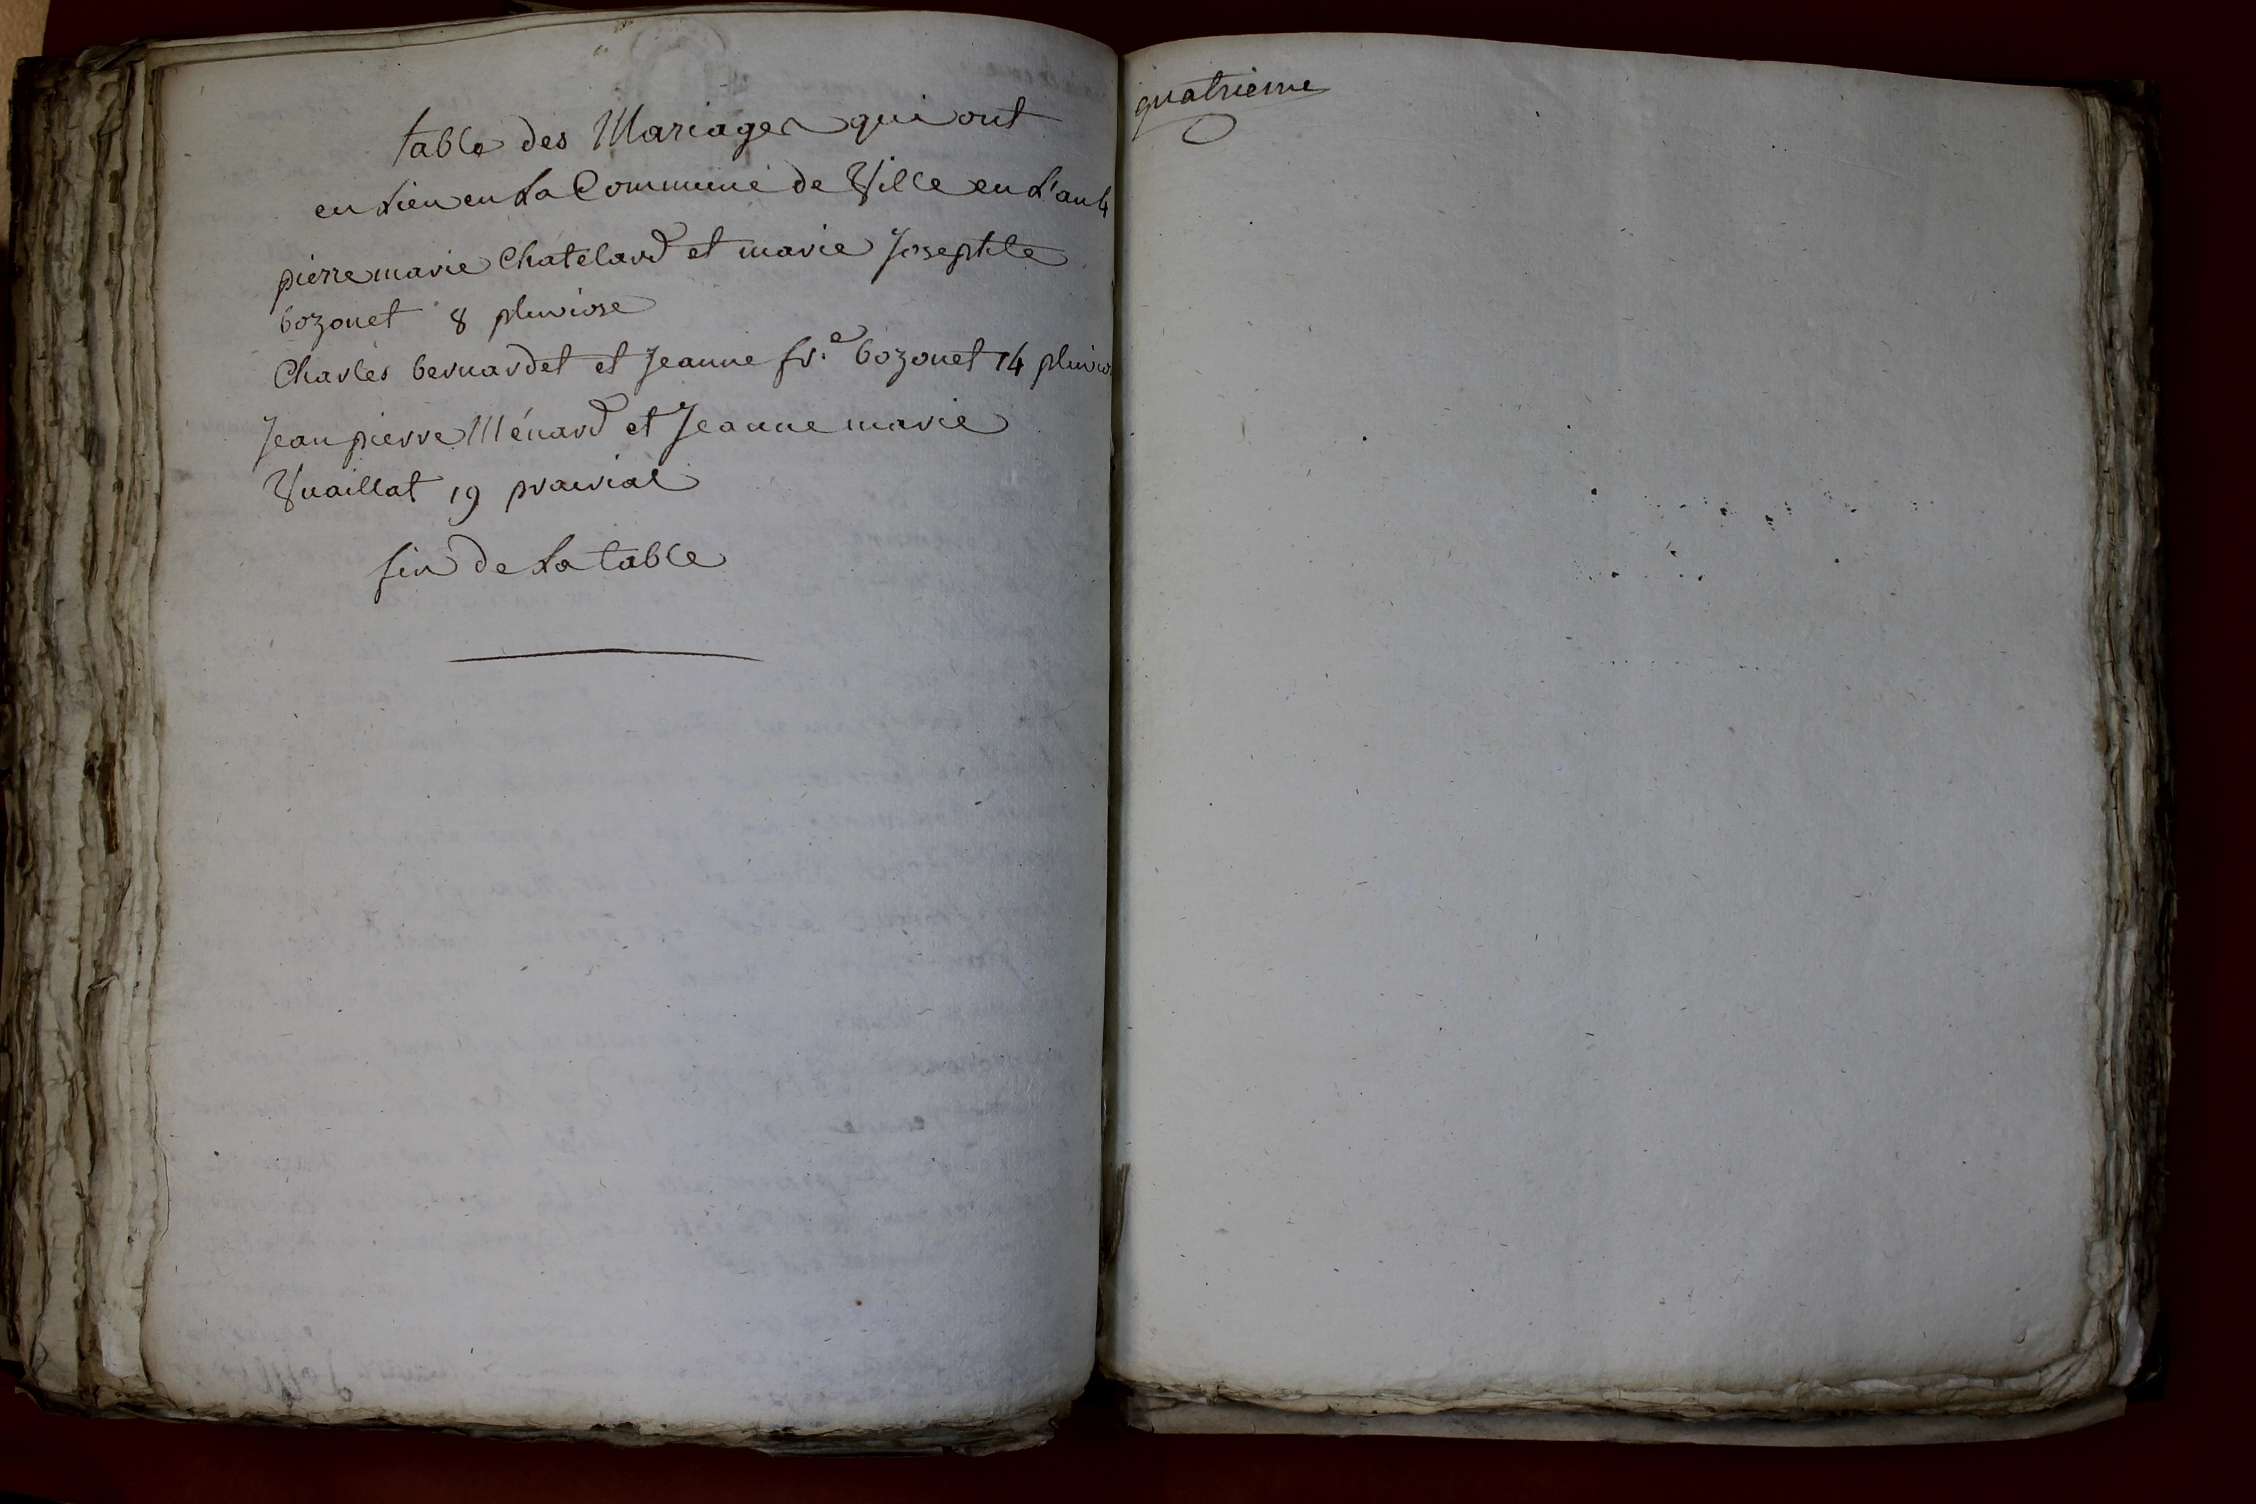 table des Mariages qui ont
eu Lieu en La Commune de Ville en L'an 4
pierre marie Chatelard et marie Josephte
bozonet 8 pluviose
Charles bernardet et Jeanne fr.e bozonet 14 pluvio
Jean pierre Ménard et Jeanne marie
Vuaillat 19 prairial
fin de La table
quatrieme